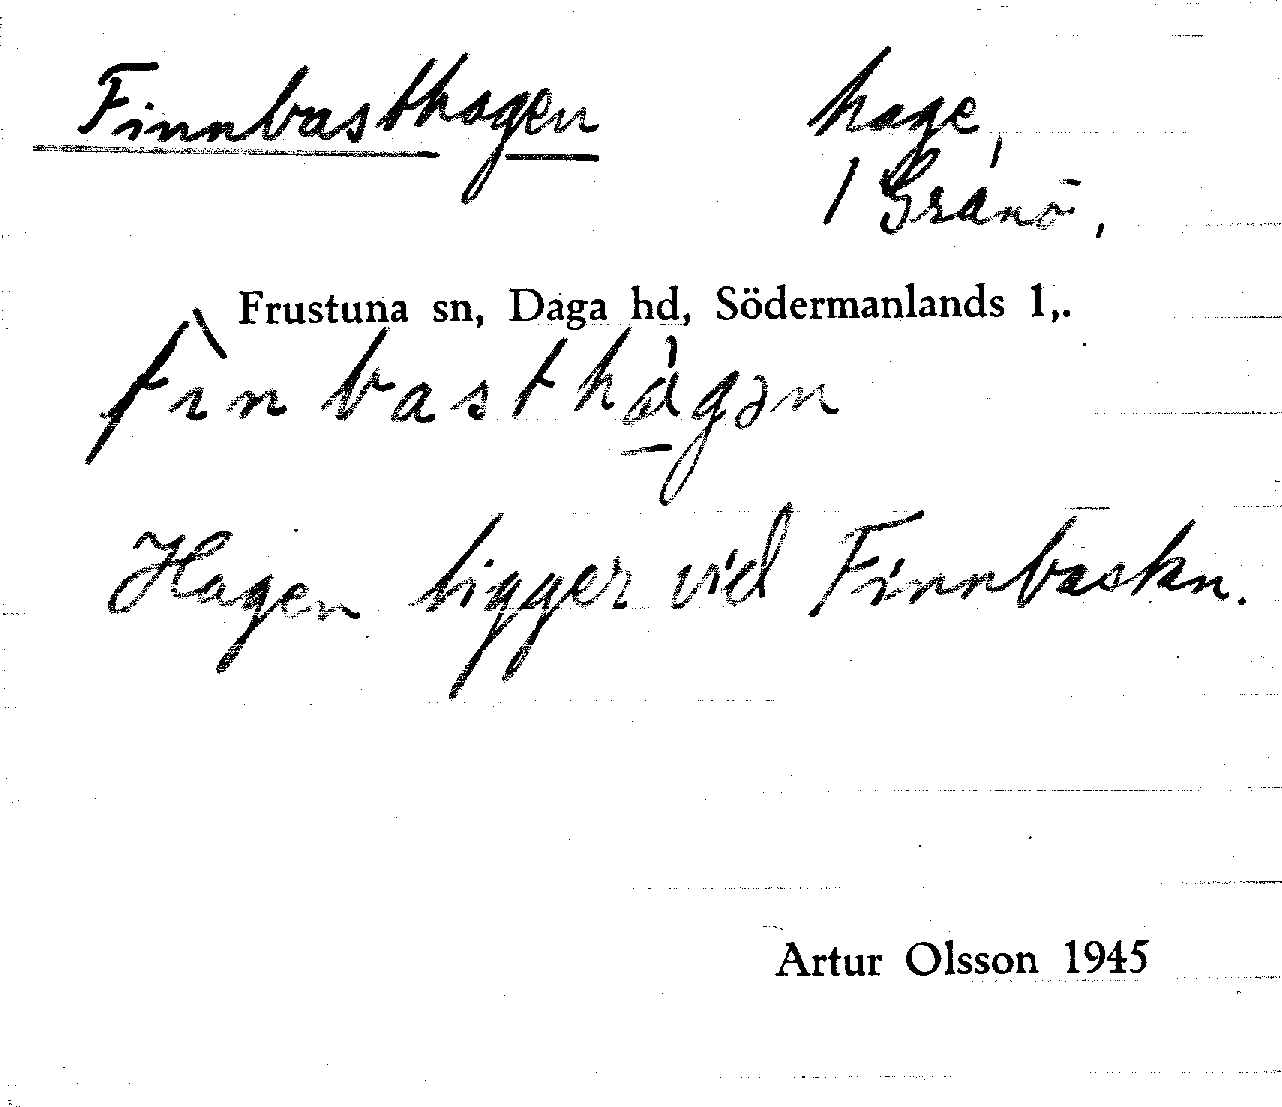 Finnbasthagen hage,
/ Granö,
Frustuna sn, Daga hd, Södermanlands l,.
fìnbasthágən
Hagen ligger vid Finnbastn.
Artur Olsson 1945